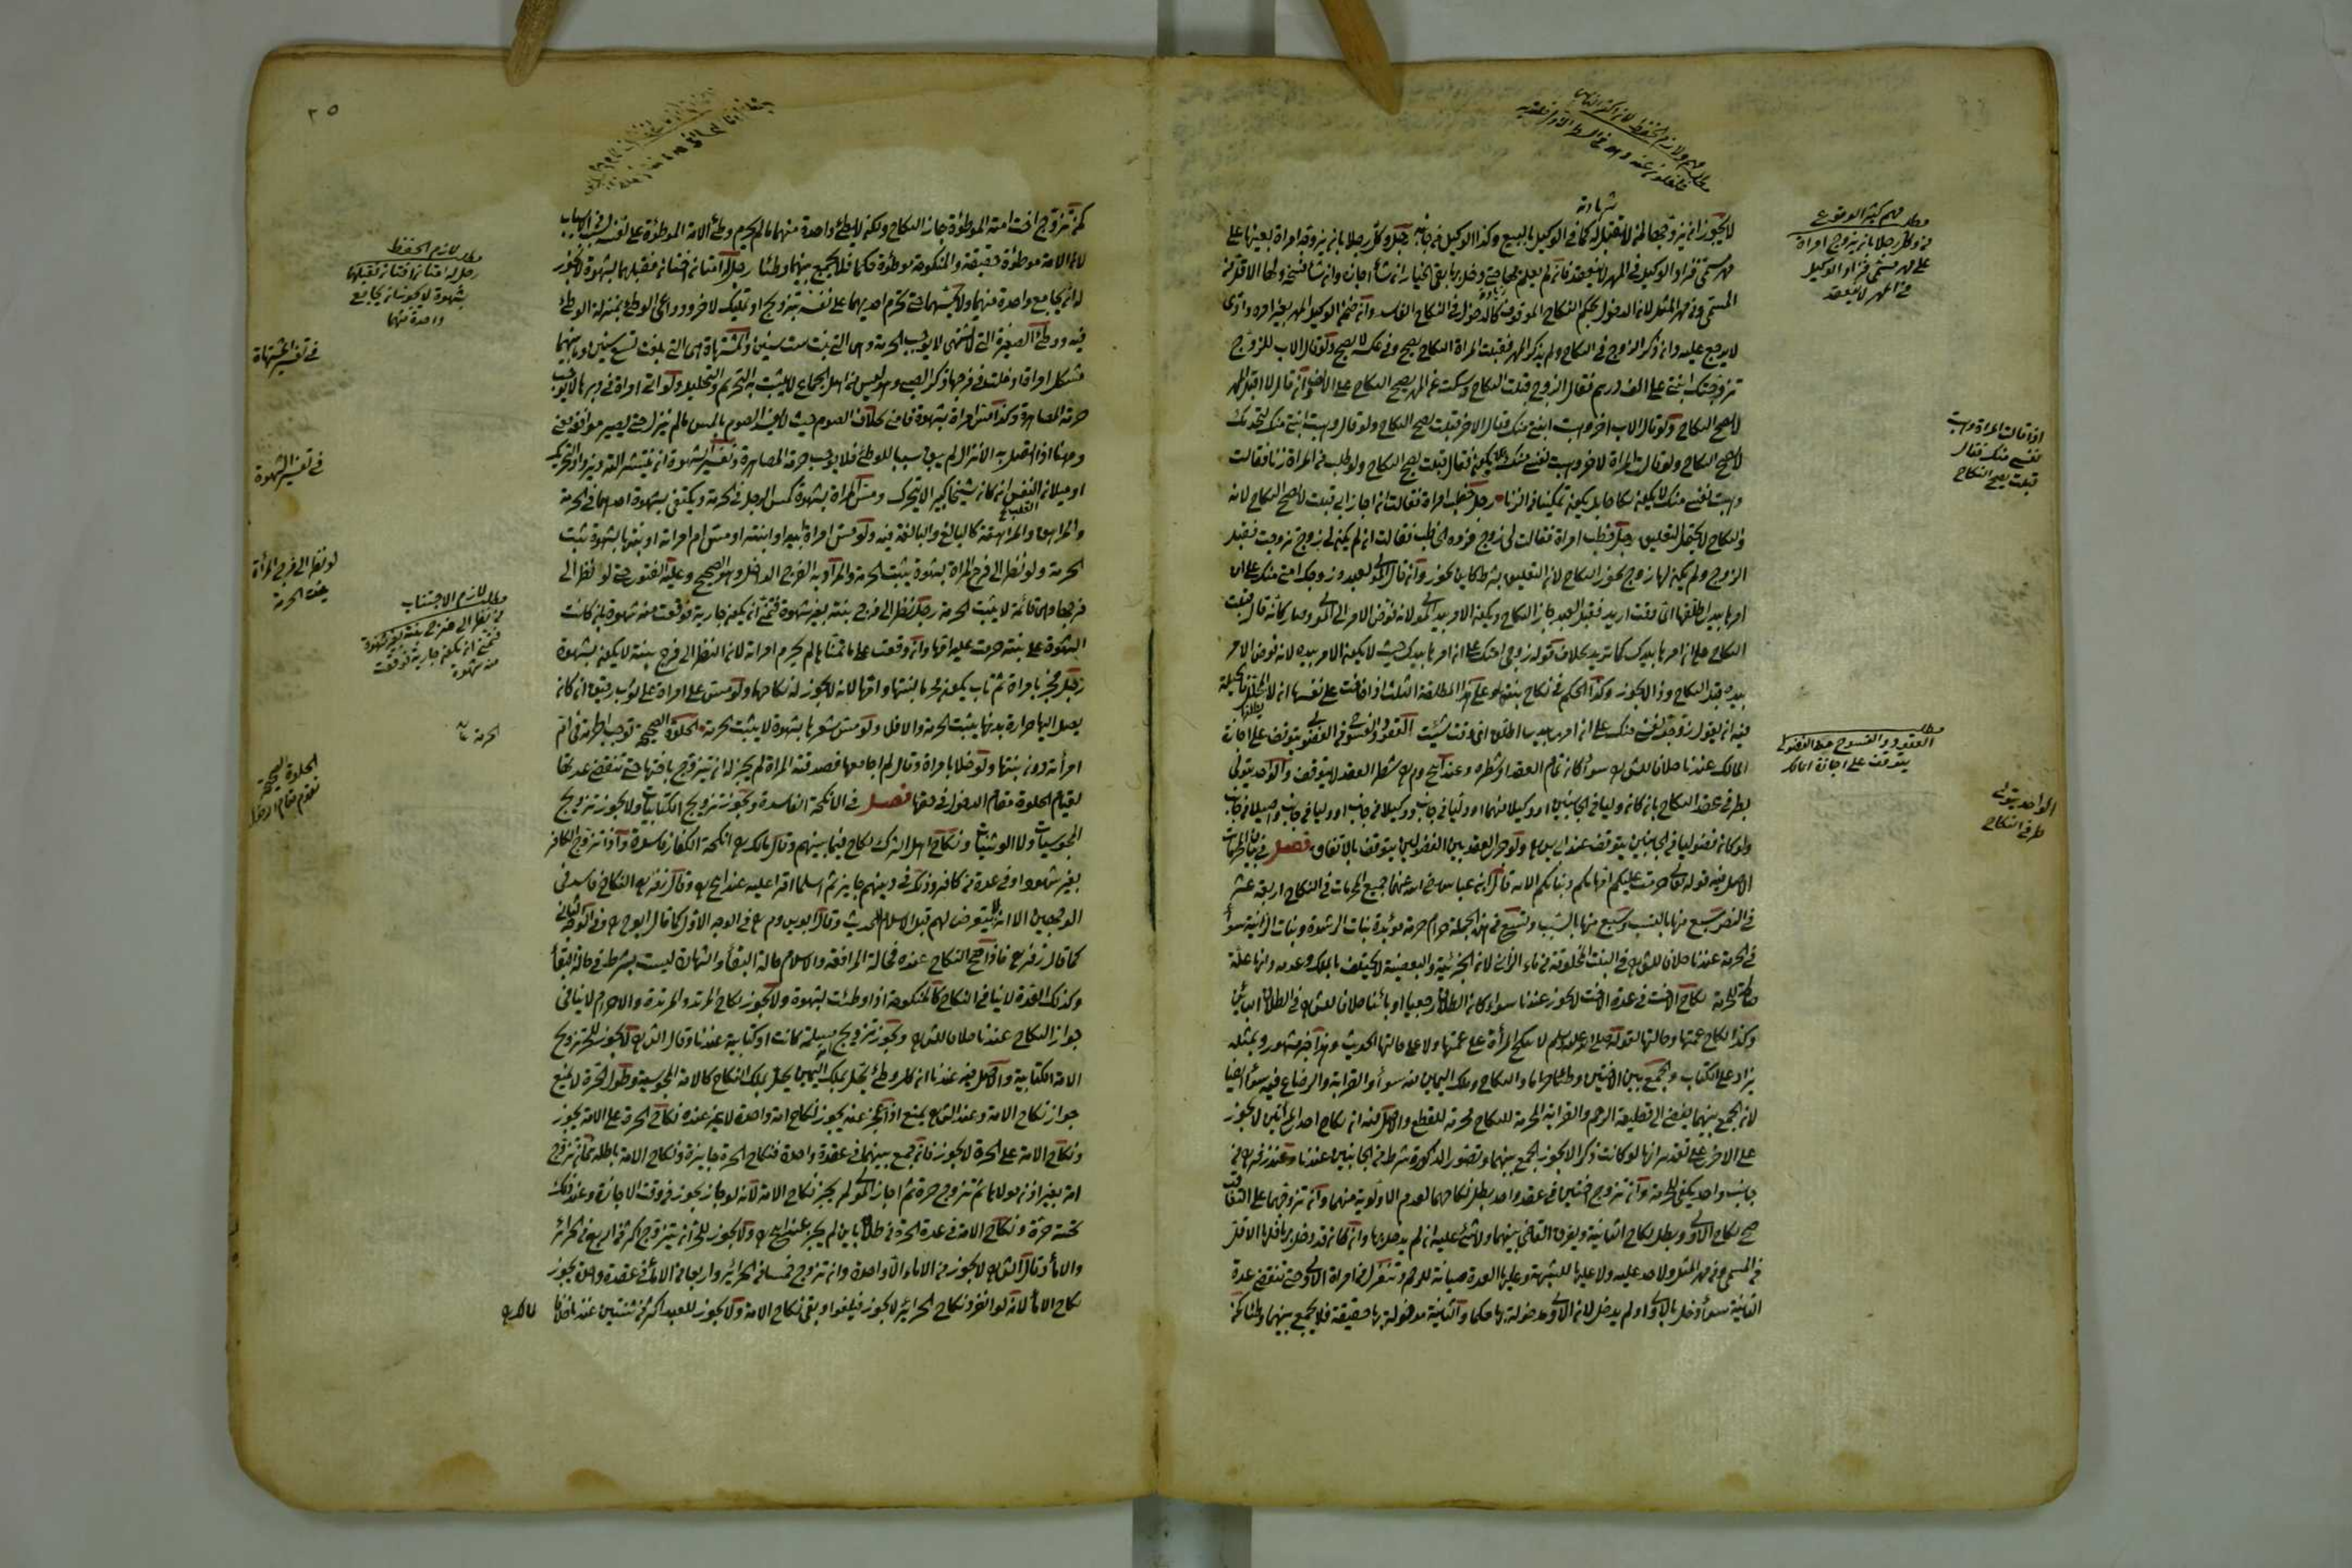 لا يجوز ان يزوجها لمن لا تقبل له كما في الوكيل بالبيع وكذا الوكيل من جانبه رجل وكل رجلا بان يزوجه امراة بعينها على
مهر مسمى فزاد الوكيل في المهر لا ينعقد فان لم يعلم بها حتى دخل بها بقي الخيار ان شاء اجازه وان شاء فسخ ولها الاقل من
المسمى ومن مهر المثل لان الدخول بحكم النكاح الموقوف كالدخول في النكاح الفاسد وان ضمن الوكيل المهر بغير امره وادى
لا يرجع عليه وان ذكر الزوج في النكاح ولم يذكر المهر فقبلت المراة النكاح يصح وفي عكسه لا يصح ولو قال الاب للزوج
زوجتك ابنتي على الف درهم فقال الزوج قبلت النكاح وسكت عن المهر يصح النكاح على الالف وان قال لا اقبل المهر
لا يصح النكاح ولو قال الاب اخر وهبت ابنتي منك فقال الاخر قبلت يصح النكاح ولو قال وهبت ابنتي منك لتخدمك
لا يصح النكاح ولو قالت المراة لاخر وهبت نفسي منك فقال قبلت يصح النكاح ولو طلب من المراة زنا فقالت
وهبت نفسي منك لا يكون نكاحا بل يكون تمكينا من الزنا رجل خطب امراة فقالت ان اجاز ابي قبلت لا يصح النكاح لانه
والنكاح لا يحتمل التعليق رجل خطب امراة فقالت لي زوج فرده الخاطب فقالت ان لم يكن لي زوج تزوجت فقبل
الزوج ولم يكن لها زوج يجوز النكاح لان التعليق بشرط كاين يجوز وان قال المولى لعبده زوجتك امتي منك على ان
امرها بيدي اطلقها اي وقت اريد فقبل العبد جاز النكاح ويكون الامر بيد المولى لانه فوض الامر الى المولى وصار كانه قال قبلت
النكاح على ان امرها بيدك كما تريد بخلاف قوله زوجني امتك على ان امرها بيدك حيث لا يكون الامر بيده لانه فوض الامر
بيده قبل النكاح وذا لا يجوز وكذا الحكم في نكاح بنته وعلى هذا المطلقة الثلث اذا خافت على نفسها ان لا يطلقها المحلل فالحيلة
فيه ان يقول زوجت نفسي منك على ان امري بيدي اطلق اي وقت شئت العقود والفسوخ من الفضولي يتوقف على اجازة
المالك عندنا خلافا للش سواء كان تمام العقد او شطره وعند ابي ح وم شطر العقد لا يتوقف والواحد يتولى
بطرفي عقد النكاح بان كان وليا في الجانبين او وكيلا منهما او وليا في جانب ووكيلا في جانب او وليا في جانب واصيلا في جانب
ولو كان فضوليا في الجانبين يتوقف عند ابي يوسف ولو جرى العقد بين الفضوليين يتوقف بالاتفاق فصل في بيان المحرمات
الاصل فيه قوله تعالى حرمت عليكم امهاتكم وبناتكم الاية قال ابن عباس رضي الله عنهما جميع المحرمات في النكاح اربعة عشر
في النص سبع منها بالنسب وسبع منها بالسبب وتسع من هذه الجملة حرام حرمة مؤبدة بنات الرشدة وبنات الزنية سواء
في الحرمة عندنا خلافا للش في البنت المخلوقة من ماء الزاني لان الجزئية والبعضية لا يختلف بالملك وعدمه وانها علة
صالحة للحرمة نكاح الاخت في عدة الاخت لا يجوز عندنا سواء كان الطلاق رجعيا او بائنا خلافا للش في الطلاق البائن
وكذا نكاح عمتها وخالتها لقوله صلى الله عليه وسلم لا تنكح المرأة على عمتها ولا على خالتها الحديث وهذا خبر مشهور وبمثله
يزاد على الكتاب والجمع بين الاختين وطئا حرام والنكاح وملك اليمين فيه سواء والقرابة والرضاع فيه سواء ايضا
لان الجمع بينهما يفضي الى قطيعة الرحم والقرابة المحرمة للنكاح محرمة للقطع والاصل فيه ان نكاح احدى امرأتين لا يجوز
على الاخرى على تقدير انها لو كانت ذكرا لا يجوز الجمع بينهما وتصور الذكورة شرط من الجانبين عندنا وعند زفر من
جانب واحد يكفي للحرمة وان تزوج اختين في عقد واحد بطل نكاحهما لعدم الاولوية منهما وان تزوجهما على التعاقب
صح نكاح الاولى وبطل نكاح الثانية ويفرق القاضي بينهما ولا شئ عليه ان لم يدخل بها وان كان قد دخل بها فلها الاقل
من المسمى ومن مهر المثل ولا حد عليه ولا عليها للشبهة وعليها العدة صيانة للرحم وتعتزل عن امراة الاولى حتى تنقضي عدة
الثانية سواء دخل بالاولى او لم يدخل لان الاولى مدخولة بها حكما والثانية مدخولة بها حقيقة فلا يجمع بينهما وطئا كمن
مطلب مهم كثير الوقوع
من وكل رجلا بان يزوج امراة
على مهر مسمى فزاد الوكيل
في المهر لا ينعقد
اذا قالت المراة وهبت
نفسي منك فقال
قبلت يصح النكاح
مطلب
العقود والفسوخ من الفضولي
يتوقف على اجازة المالك
الواحد يتولى
طرفي النكاح
كمن تزوج اخت امته الموطؤة جاز النكاح ولكن لا يطئ واحدة منهما ما لم يحرم وطئ الامة الموطؤة على نفسه بسبب من الاسباب
لان الامة موطؤة حقيقة والمنكوحة موطؤة حكما فلا يجمع بينهما وطئا رجل له امتان اختان فقبلهما بشهوة لا يجوز
له ان يجامع واحدة منهما ولا يمسهما حتى يحرم احديهما على نفسه بتزويج او تمليك لاخر ودواعي الوطئ بمنزلة الوطئ
فيه ووطئ الصغيرة التي لا تشتهى لا يوجب الحرمة وهي التي بنت ست سنين والمشتهاة هي التي بلغت تسع سنين وما بينهما
مشكل اذا ادخلت في فرجها ذكر الصبي وهو ليس من اهل الجماع لا يثبت به التحريم والتحليل ولو اتى امراة في دبرها لا يوجب
حرمة المصاهرة وكذا مس امراة بشهوة فامنى بخلاف الصوم حيث لا يفسد الصوم بالمس ما لم ينزل حتى يصير مواقعا معنى
وههنا اذا اتصل به الانزال لم يبق سببا للوطئ فلا يوجب حرمة المصاهرة وتفسير الشهوة ان تنتشر الته ويزداد تحركه
او ميلان النفس ان كان شيخا كبيرا لا يتحرك ومس المراة بشهوة كمس الرجل في الحرمة ويكتفى بشهوة احدهما في الحرمة
والمراهق والمراهقة كالبالغ والبالغة فيه ولو مس امراة ابيه او ابنته او مس ام امراته او بنتها بشهوة تثبت
الحرمة ولو نظر الى فرج المراة بشهوة يثبت الحرمة والمراد به الفرج الداخل وهو الصحيح وعليه الفتوى حتى لو نظر الى
فرجها وهي قائمة لا يثبت الحرمة رجل نظر الى فرج بنته بغير شهوة فتمنى ان يكون جارية فوقعت منه شهوة فان كانت
الشهوة على بنته حرمت عليه امها وان وقعت على ما تمنى بها لم يحرم امراته لان النظر الى فرج بنته لا يكون بشهوة
رجل فجر بامراة ثم تاب يكون محرما لبنتها وامها لانه لا يجوز له نكاحها ولو مس على امراة على ثوب رقيق ان كان
يصل اليها حرارة بدنها يثبت الحرمة والا فلا ولو مس شعرها بشهوة لا يثبت الحرمة الخلوة الصحيحة توجب الحرمة في ام
امرأته دون بنتها ولو خلا بامراة وقال لم اجامعها فصدقته المراة لم يجز له ان يتزوج باختها حتى تنقضي عدتها
لقيام الخلوة مقام الدخول في حقها فصل في الانكحة الفاسدة ويجوز تزويج الكتابيات ولا يجوز تزويج
المجوسيات ولا الوثنيات ونكاح اهل الشرك نكاح فيما بينهم وقال مالك انكحة الكفار فاسدة واذا تزوج الكافر
بغير شهود او في عدة من كافر وذلك في دينهم جايز ثم اسلما اقرا عليه عند ابي ح وقال زفر النكاح فاسد في
الوجهين الا انه لا يتعرض لهم قبل الاسلام للحديث وقال ابو يوسف وم في الوجه الاول كما قال ابو ح وفي الوجه الثاني
كما قال زفر فاذا صح النكاح عنده فحالة المرافعة والاسلام حالة البقاء والشهادة ليست بشرط في حالة البقاء
وكذلك العدة لا ينافي النكاح كالمنكوحة اذا وطئت بشهوة ولا يجوز نكاح المرتد والمرتدة والاحرام لا ينافي
جواز النكاح عندنا خلافا للش ويجوز تزويج امة مسلمة كانت او كتابية عندنا وقال الش لا يجوز للحر تزويج
الامة الكتابية والاصل فيه عندنا ان كل وطئ يحل بملك اليمين يحل بملك النكاح كالامة المجوسية وطول الحرة لا يمنع
جواز نكاح الامة وعند الش يمنع اذا عجز عنه يجوز نكاح امة واحدة لا غير عنده نكاح الحرة على الامة يجوز
ونكاح الامة على الحرة لا يجوز فان جمع بينهما في عقدة واحدة فنكاح الحرة جايزة ونكاح الامة باطلة فان تزوج
امة بغير اذن مولاها ثم تزوج حرة ثم اجاز المولى لم يجز نكاح الامة لانه لو جاز يجوز في وقت الاجازة وعند ذلك
تحته حرة ونكاح الامة في عدة الحرة من طلاق باين لم يجز عند ابي ح ولا يجوز للحر ان يتزوج اكثر من اربع من الحرائر
والاماء وقال الش لا يجوز من الاماء الا واحدة وان تزوج خمسا من الحرائر واربعا من الاماء في عقدة واحدة يجوز
نكاح الاماء لانه لو انفرد نكاح الحرائر لا يجوز فيلغوا وبقي نكاح الامة ولا يجوز للعبد اكثر من ثنتين عندنا خلافا
لمالك
مطلب لازم الحفظ
رجل له امتان اختان فقبلهما
بشهوة لا يجوز ان يجامع
واحدة منهما
في تفسير المشتهاة
في تفسير الشهوة
لو نظر الى فرج المرأة
يثبت الحرمة
مطلب لازم الاجتناب
من نظر الى فرج بنته بغير شهوة
فتمنى ان يكون جارية فوقعت
منه شهوة
الخلوة الصحيحة
تقوم مقام الدخول
٢٥